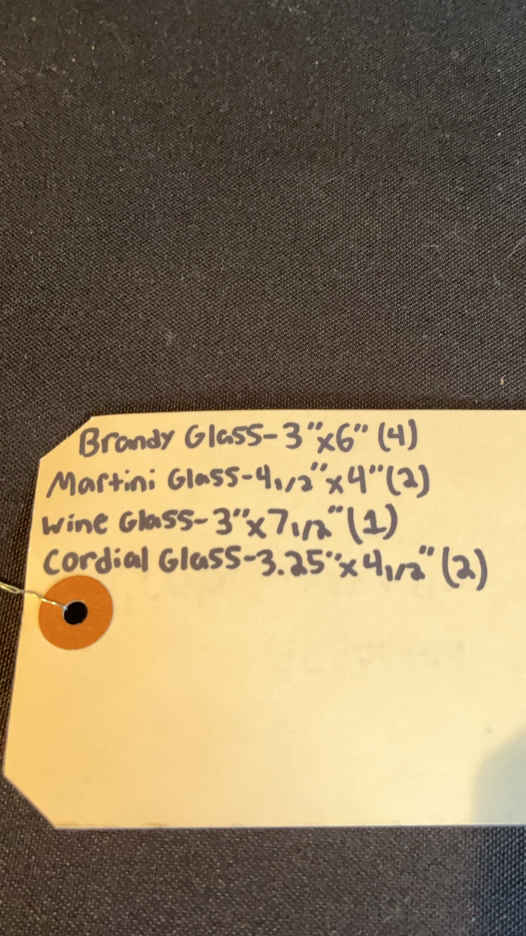 Brandy Glass-3"x6" (4)
Martini Glass-4 1/2"x4" (2)
Wine Glass-3"x7 1/2" (1)
Cordial Glass-3.25"x4 1/2" (2)